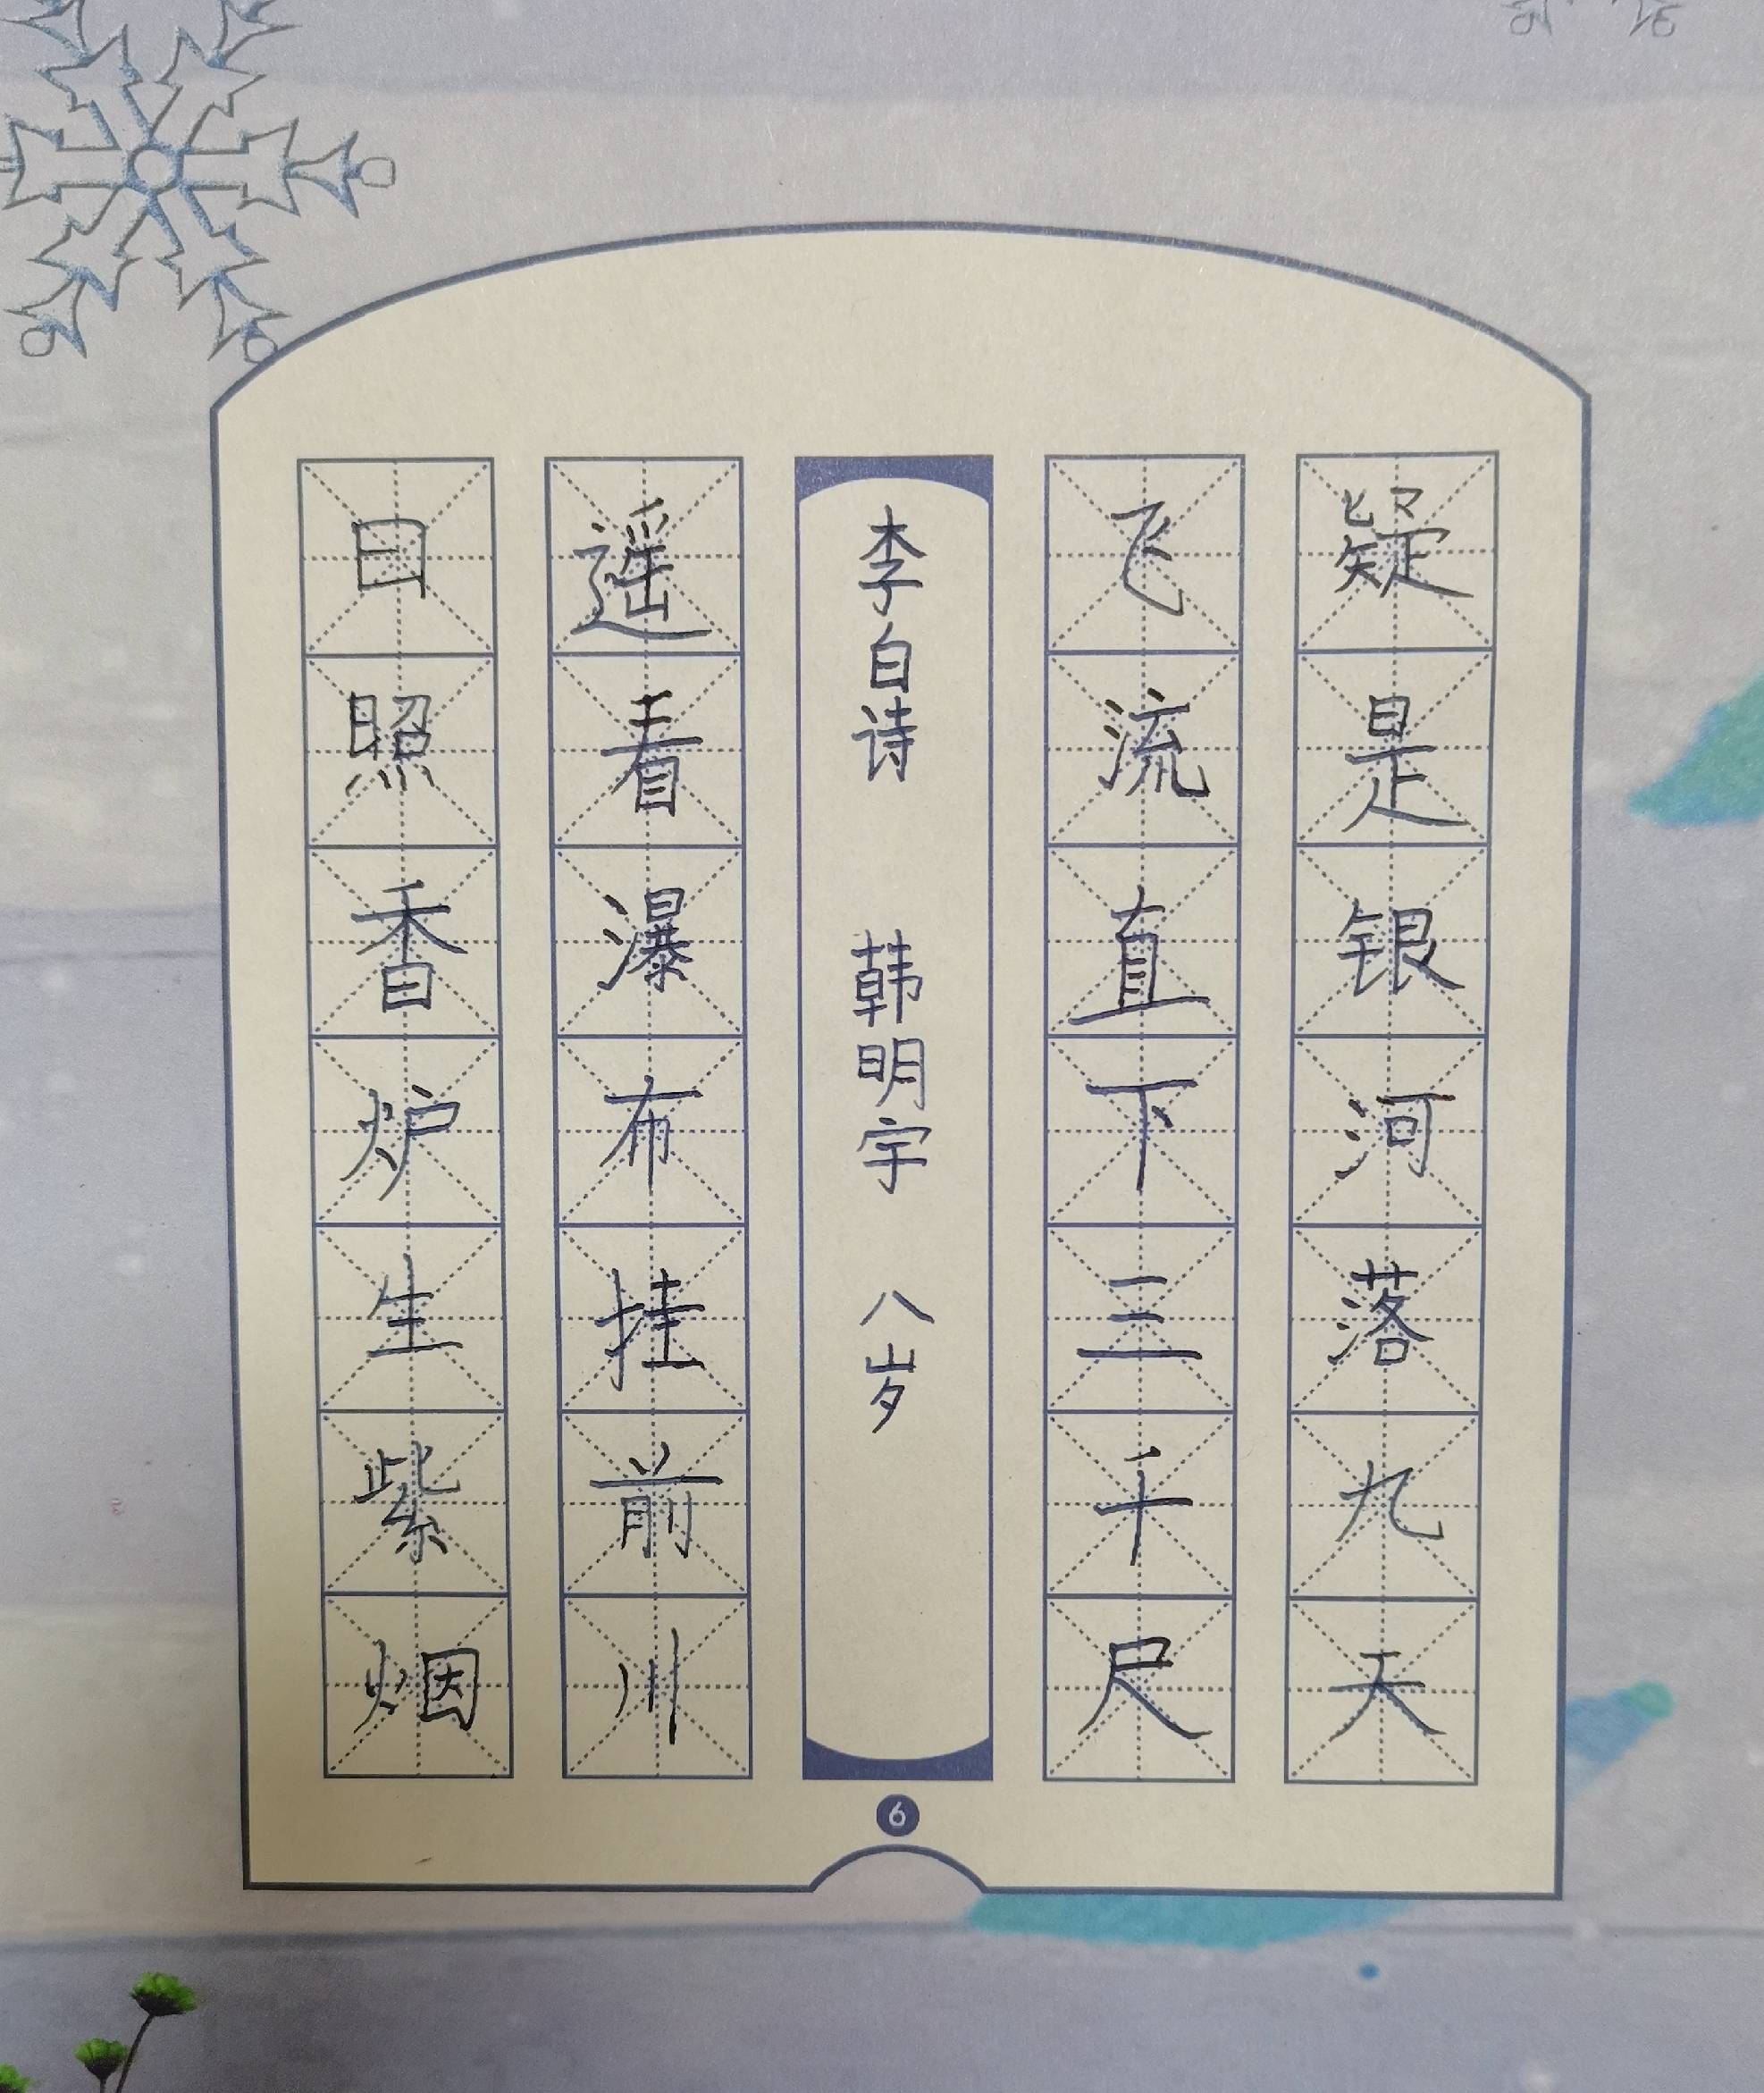 日照香炉生紫烟
遥看瀑布挂前川
李白诗 韩明宇 八岁
飞流直下三千尺
疑是银河落九天
6